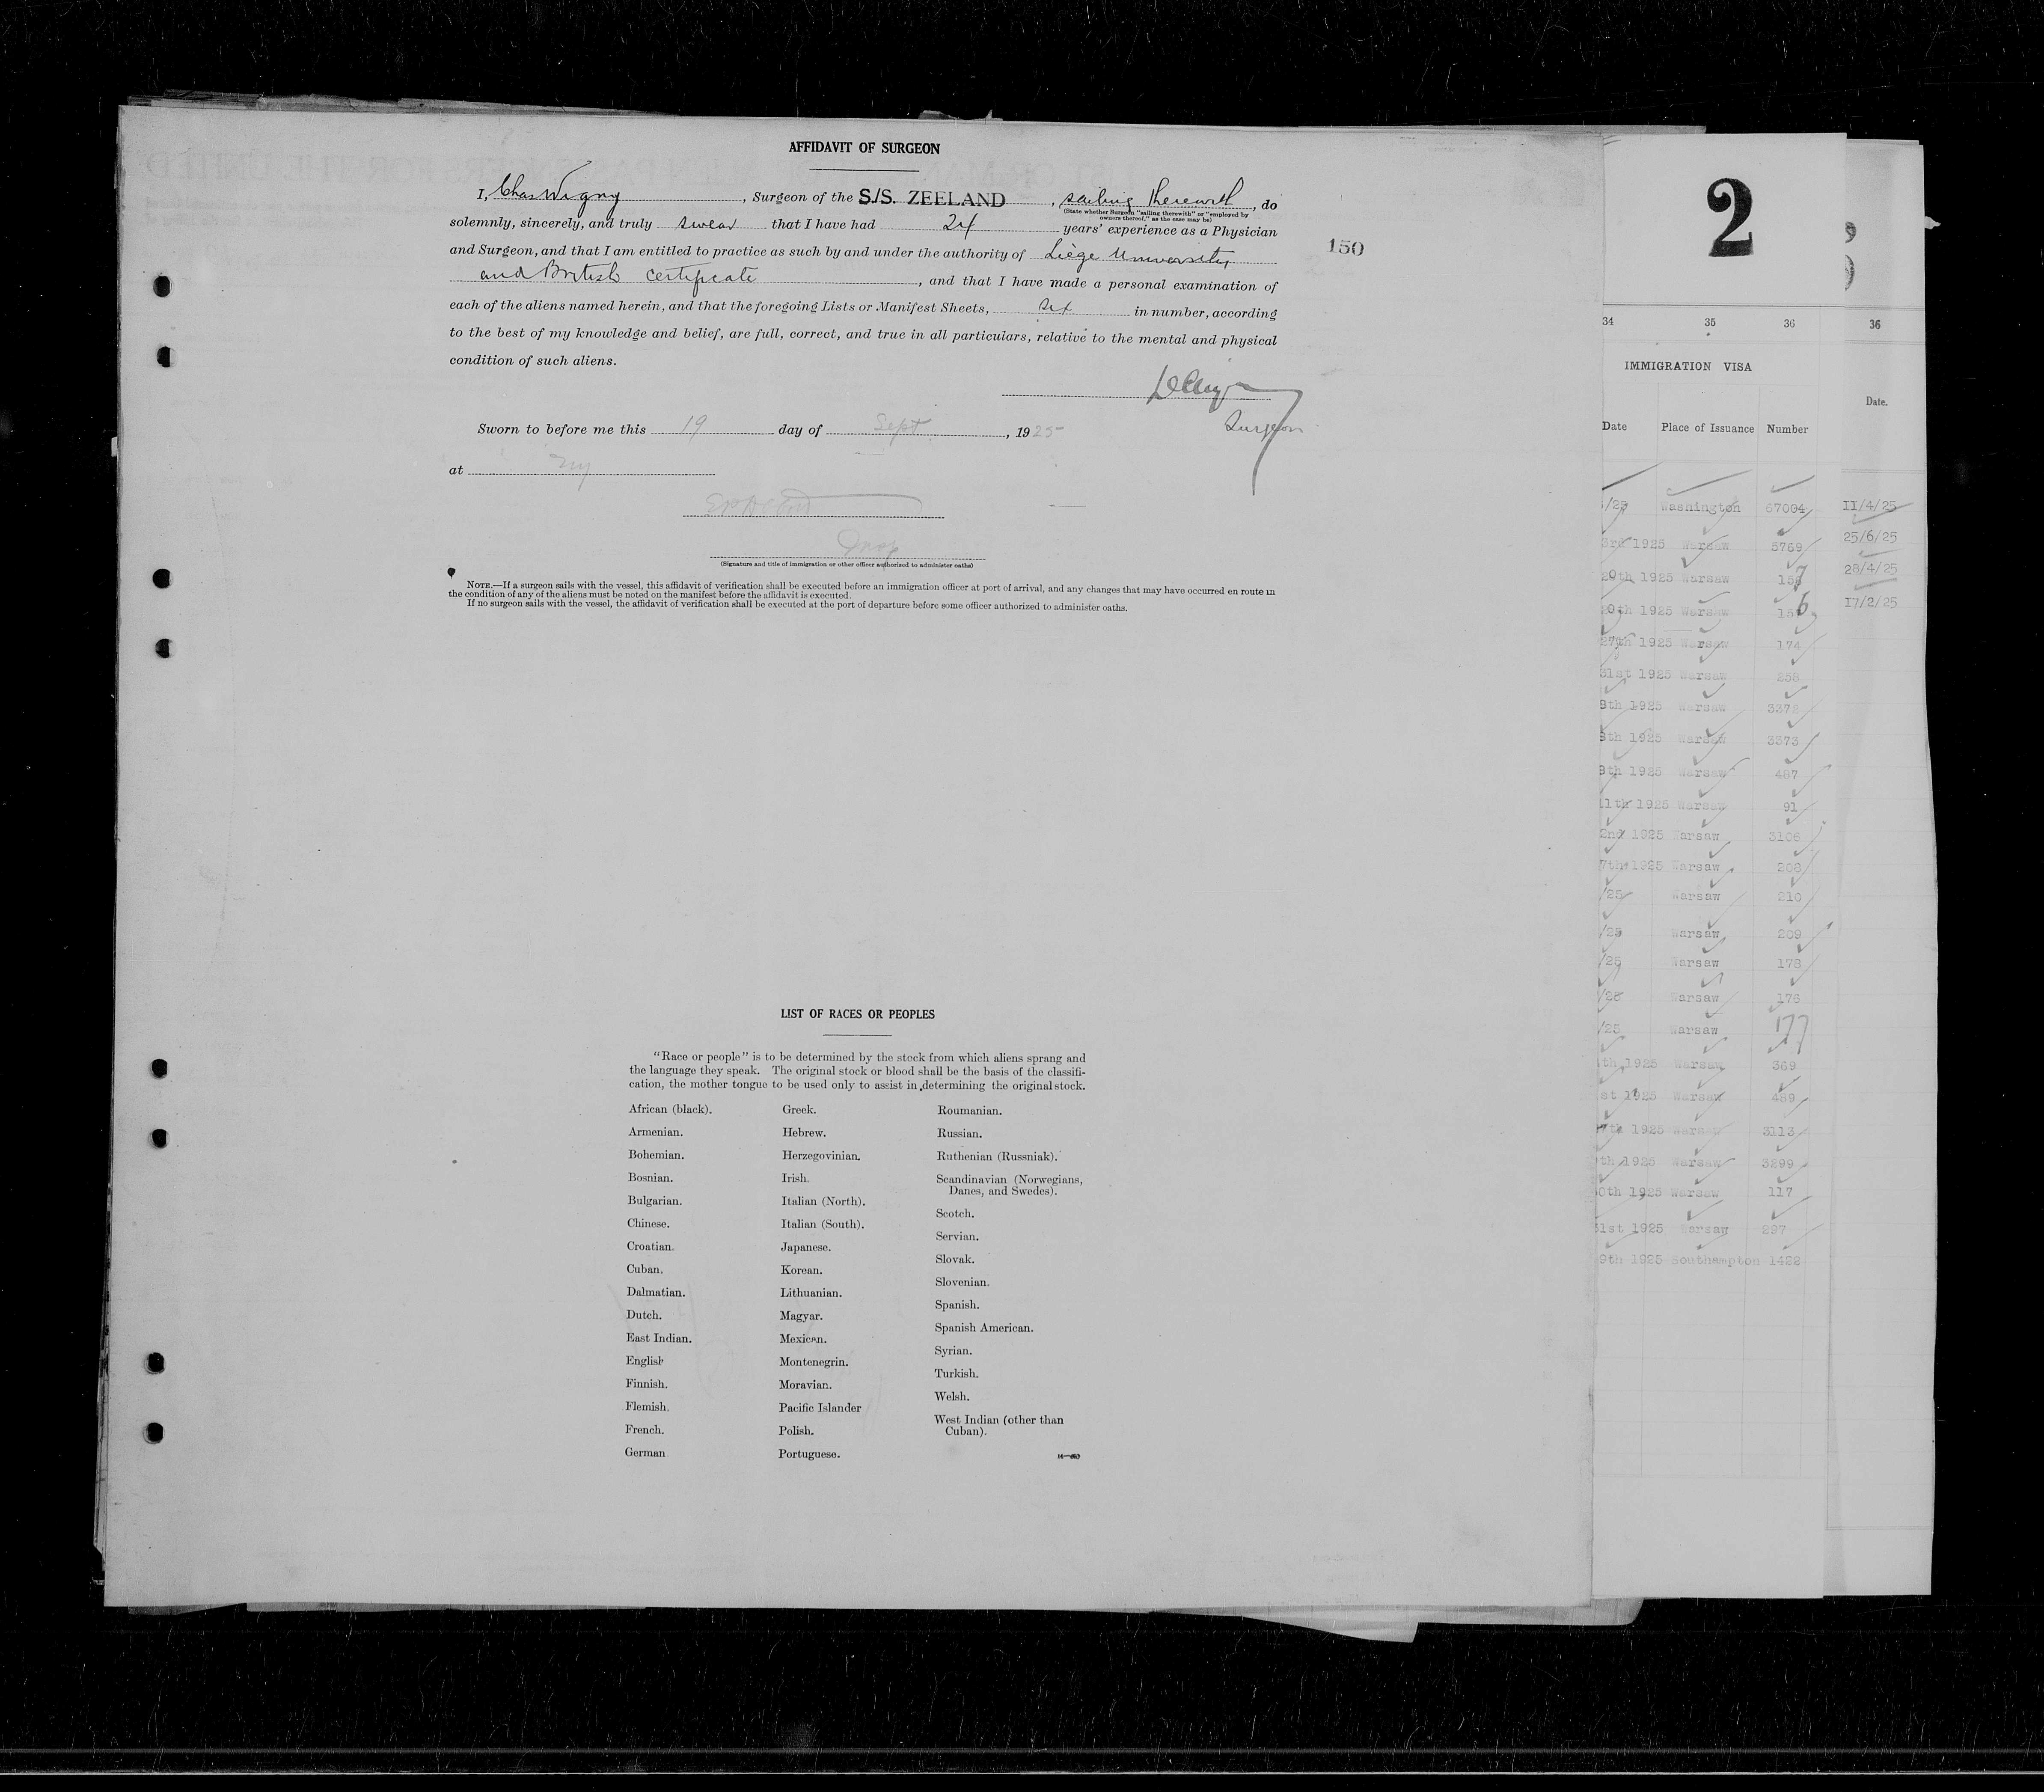 AFFIDAVIT OF SURGEON
I, Chas Wigny, Surgeon of the S./S. ZEELAND, sailing therewith, do
(State whether Surgeon "sailing therewith" or "employed by
owners thereof," as the case may be)
solemnly, sincerely, and truly swear that I have had 24 years' experience as a Physician
and Surgeon, and that I am entitled to practice as such by and under the authority of Liège University
and British certificate, and that I have made a personal examination of
each of the aliens named herein, and that the foregoing Lists or Manifest Sheets, six in number, according
to the best of my knowledge and belief, are full, correct, and true in all particulars, relative to the mental and physical
condition of such aliens.
Surgeon
Sworn to before me this 19 day of Sept, 1925
at NY
(Signature and title of immigration or other officer authorized to administer oaths)
NOTE.—If a surgeon sails with the vessel, this affidavit of verification shall be executed before an immigration officer at port of arrival, and any changes that may have occurred en route in
the condition of any of the aliens must be noted on the manifest before the affidavit is executed.
If no surgeon sails with the vessel, the affidavit of verification shall be executed at the port of departure before some officer authorized to administer oaths.
150
LIST OF RACES OR PEOPLES
"Race or people" is to be determined by the stock from which aliens sprang and
the language they speak. The original stock or blood shall be the basis of the classifi-
cation, the mother tongue to be used only to assist in determining the original stock.
African (black).
Armenian.
Bohemian.
Bosnian.
Bulgarian.
Chinese.
Croatian.
Cuban.
Dalmatian.
Dutch.
East Indian.
English
Finnish.
Flemish.
French.
German
Greek.
Hebrew.
Herzegovinian.
Irish.
Italian (North).
Italian (South).
Japanese.
Korean.
Lithuanian.
Magyar.
Mexican.
Montenegrin.
Moravian.
Pacific Islander
Polish.
Portuguese.
Roumanian.
Russian.
Ruthenian (Russniak).
Scandinavian (Norwegians,
Danes, and Swedes).
Scotch.
Servian.
Slovak.
Slovenian.
Spanish.
Spanish American.
Syrian.
Turkish.
Welsh.
West Indian (other than
Cuban).
2
34 35 36
IMMIGRATION VISA
Date Place of Issuance Number
/25 Washington 67004
3rd 1925 Warsaw 5769
20th 1925 Warsaw 157
20th 1925 Warsaw 156
27th 1925 Warsaw 174
31st 1925 Warsaw 258
9th 1925 Warsaw 3372
9th 1925 Warsaw 3373
9th 1925 Warsaw 487
11th 1925 Warsaw 91
2nd 1925 Warsaw 3106
7th 1925 Warsaw 208
/25 Warsaw 210
/25 Warsaw 209
/25 Warsaw 178
/25 Warsaw 176
/25 Warsaw 177
th 1925 Warsaw 369
st 1925 Warsaw 489
7th 1925 Warsaw 3113
9th 1925 Warsaw 3299
0th 1925 Warsaw 117
31st 1925 Warsaw 297
9th 1925 Southampton 1422
36
Date.
11/4/25
25/6/25
28/4/25
17/2/25